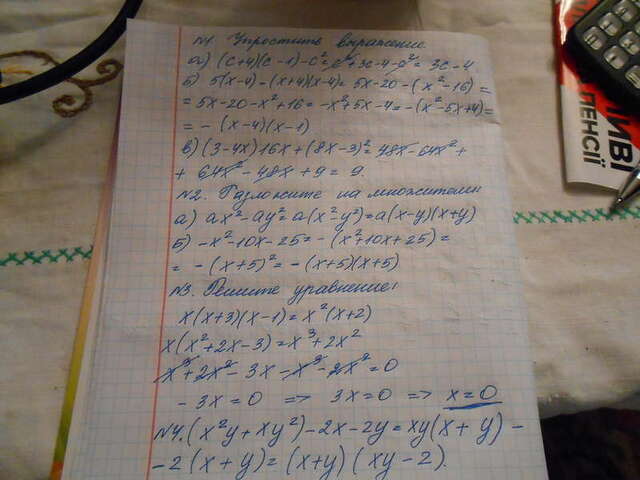 №1. Упростите выражение
а) (c+4)(c-1)-c²=c²+3c-4-c²=3c-4
б) 5(x-4)-(x+4)(x-4)=5x-20-(x²-16)=
=5x-20-x²+16=-x²+5x-4=-(x²-5x+4)=
=-(x-4)(x-1)
в) (3-4x)16x+(8x-3)²=48x-64x²+
+64x²-48x+9=9.
№2. Разложите на множители
а) ax²-ay²=a(x²-y²)=a(x-y)(x+y)
б) -x²-10x-25=-(x²+10x+25)=
=-(x+5)²=-(x+5)(x+5)
№3. Решите уравнение:
x(x+3)(x-1)=x²(x+2)
x(x²+2x-3)=x³+2x²
x³+2x²-3x-x³-2x²=0
-3x=0 => 3x=0 => x=0
№4. (x²y+xy²)-2x-2y=xy(x+y)-
-2(x+y)=(x+y)(xy-2).
ИВІ
ПЕНСІЇ